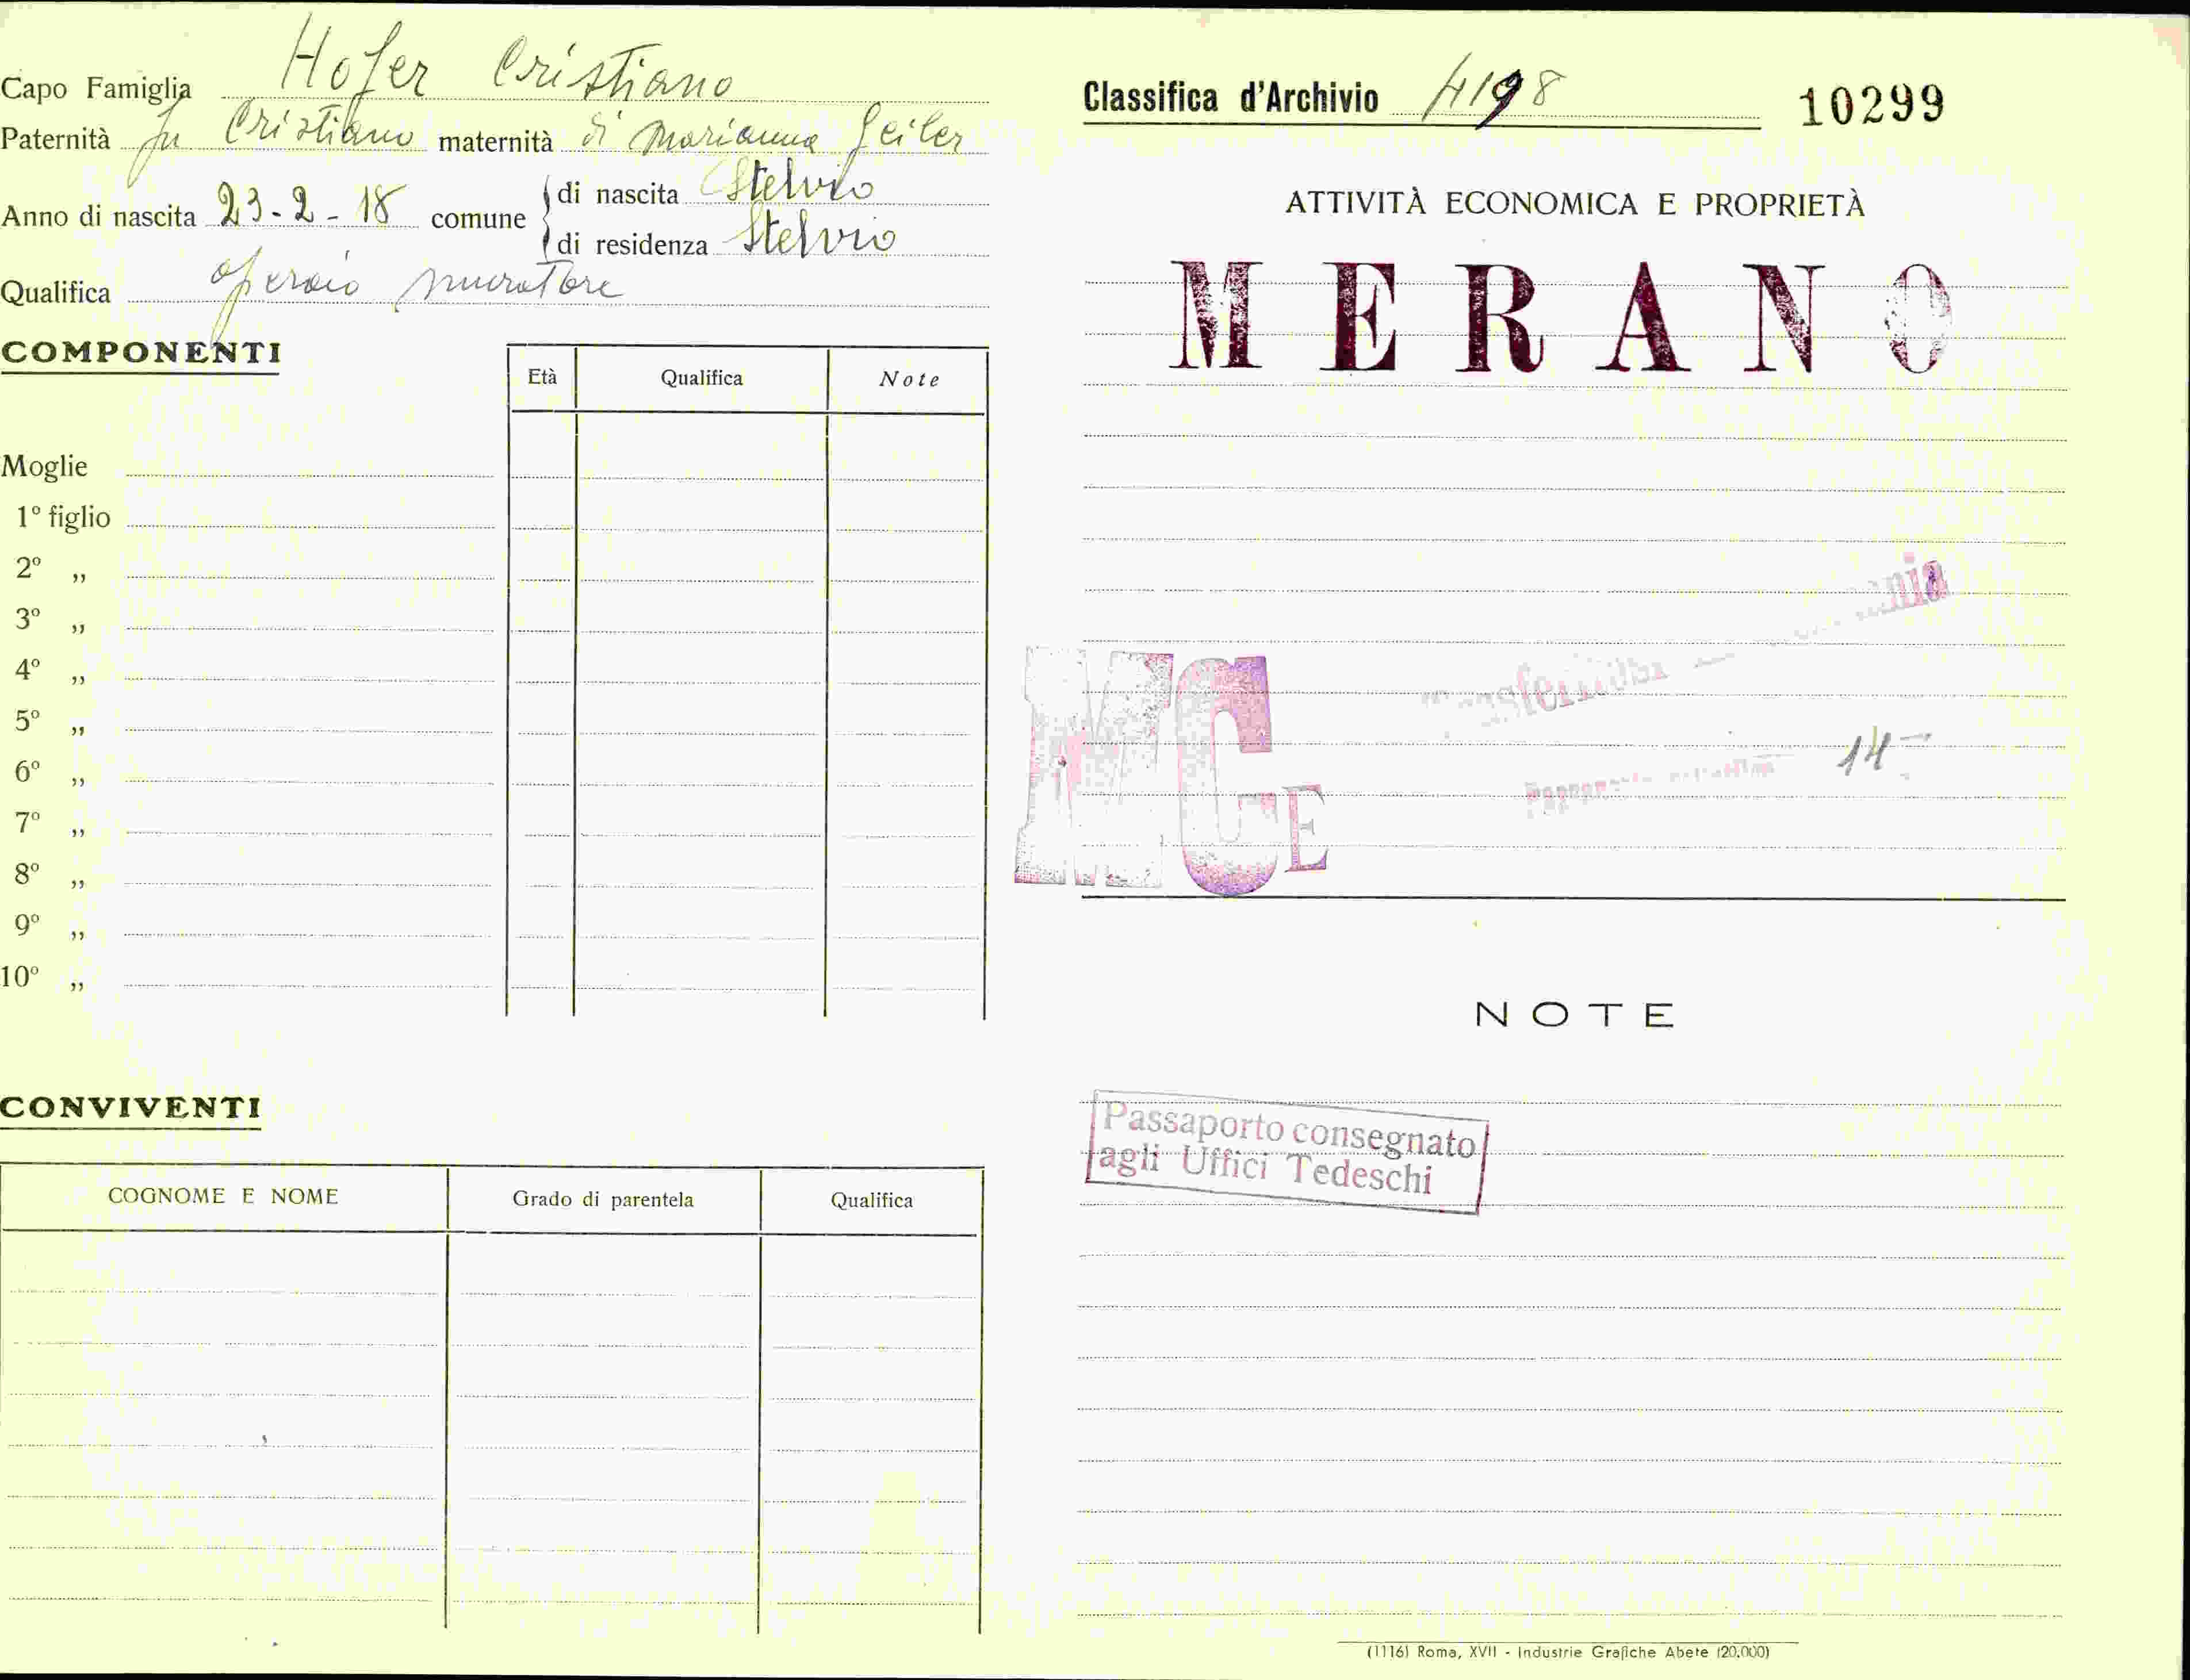 Capo Famiglia Hofer Cristiano
Paternità fu Cristiano maternità di Marianna Geiler
Anno di nascita 23-2-18 comune
di nascita Stelvio
di residenza Stelvio
Qualifica operaio muratore
COMPONENTI
Età Qualifica Note
Moglie
1º figlio
2º „
3º „
4º „
5º „
6º „
7º „
8º „
9º „
10º „
CONVIVENTI
COGNOME E NOME Grado di parentela Qualifica
Classifica d'Archivio 4198 10299
ATTIVITÀ ECONOMICA E PROPRIETÀ
MERANO
MCE
14
NOTE
Passaporto consegnato
agli Uffici Tedeschi
(1116) Roma, XVII - Industrie Grafiche Abete (20.000)